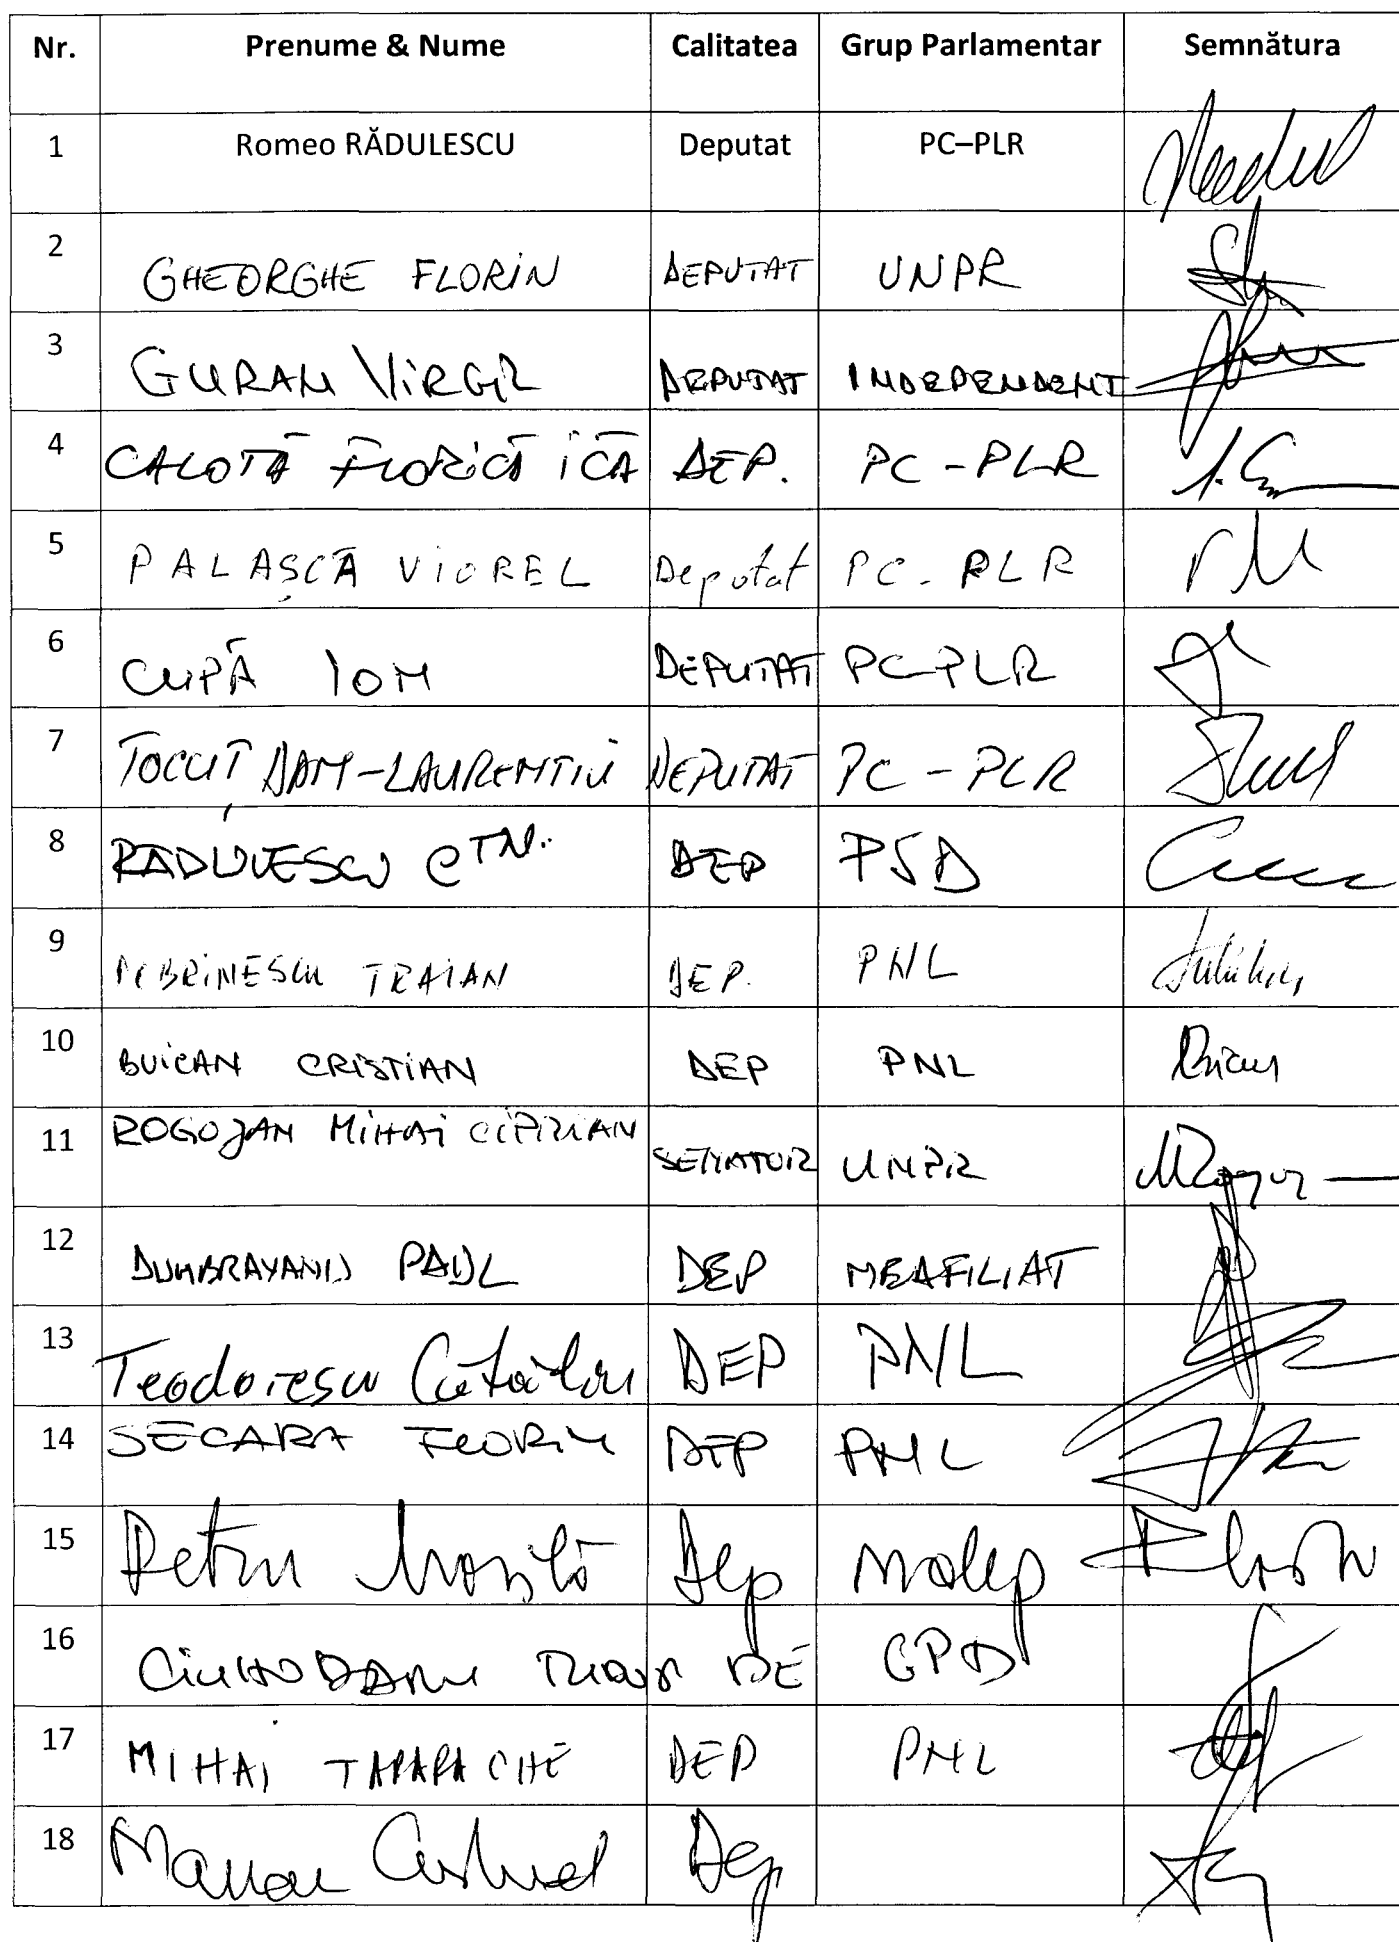 Nr. Prenume & Nume Calitatea Grup Parlamentar Semnătura
1 Romeo RĂDULESCU Deputat PC–PLR
2 GHEORGHE FLORIN DEPUTAT UNPR
3 GURAN VIRGIL DEPUTAT INDEPENDENT
4 CALOTĂ FLORICĂ ICĂ DEP. PC-PLR
5 PALAȘCĂ VIOREL Deputat PC-PLR
6 CUPĂ ION DEPUTAT PC-PLR
7 TOCUȚ DAN-LAURENTIU DEPUTAT PC-PLR
8 RADULESCU CTN. DEP PSD
9 TRAIAN DEP. PNL
10 BUICAN CRISTIAN DEP PNL
11 ROGOJAN MIHAI CIPRIAN SENATOR UNPR
12 DUMBRAVANU PAUL DEP NEAFILIAT
13 Teodorescu Cătălin DEP PNL
14 SECARA FLORIN DEP PNL
15 Petru Dep
16 CIUHODARU TUDOR DE GPD
17 MIHAI DEP PNL
18 Dep